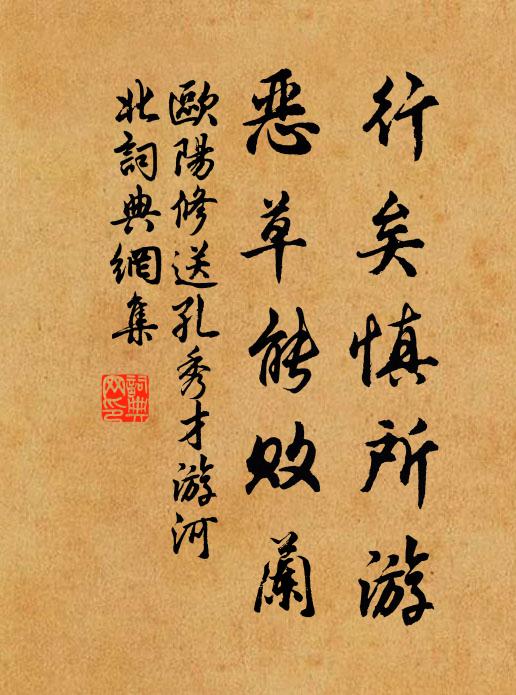 行矣慎所游
恶草能败蘭
歐陽修送孔秀才游河
北詞典網集
詞典
网印